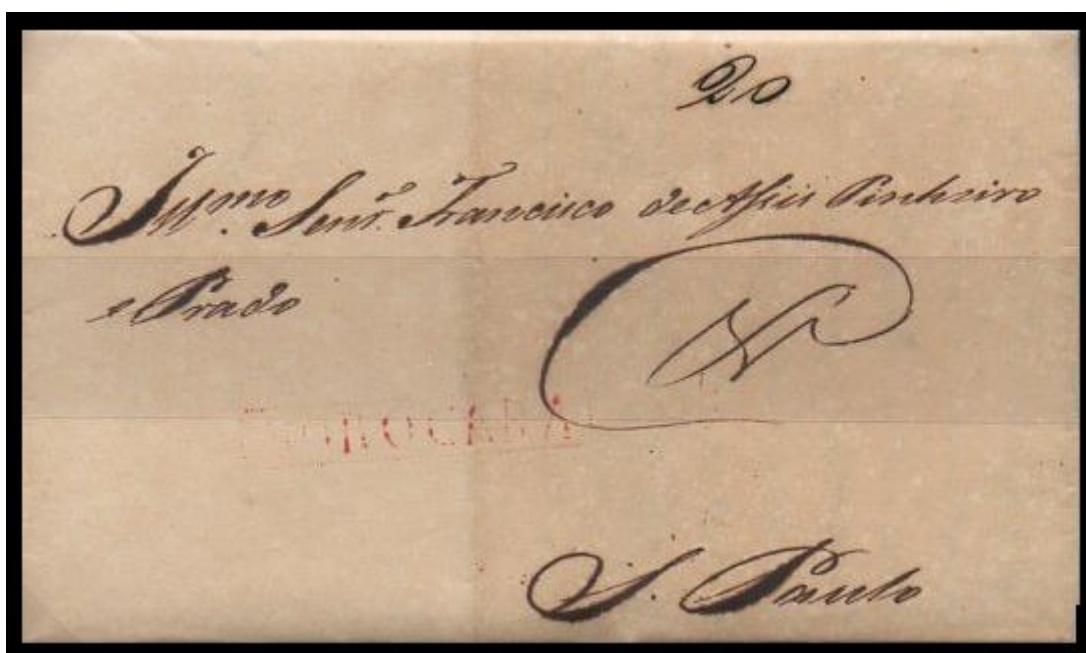 20
Illmo. Senr. Francisco de Assis Pinheiro
e Prado
SOROCABA
S. Paulo